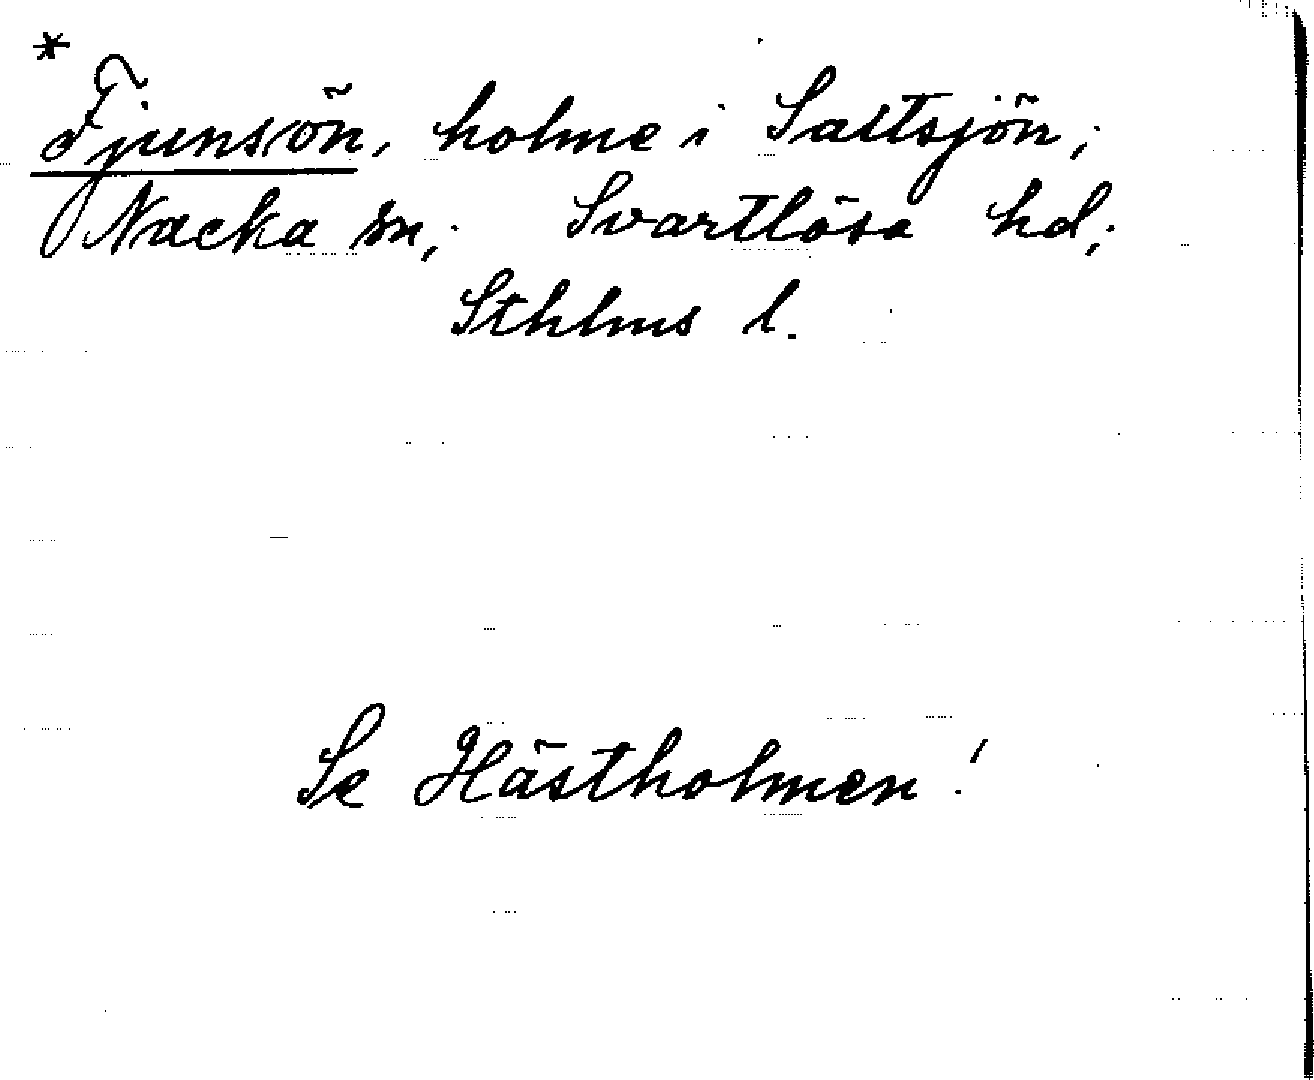 *
Fjunsön, holme i Saltsjön;
Nacka sn; Svartlösa hd;
Sthlms l.
Se Hästholmen!